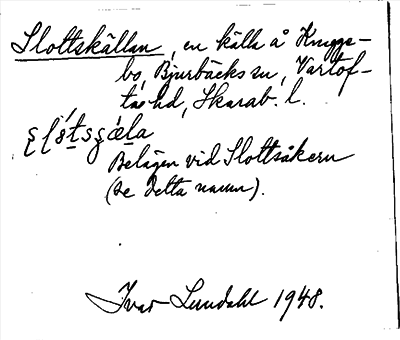 Slottskällan, en källa å Knugs-
bo, Bjurbäcks sn, Vartof-
ta hd, Skarab. l.
Belägen vid Slottsåkern
(se detta namn).
Ivar Lundahl 1948.